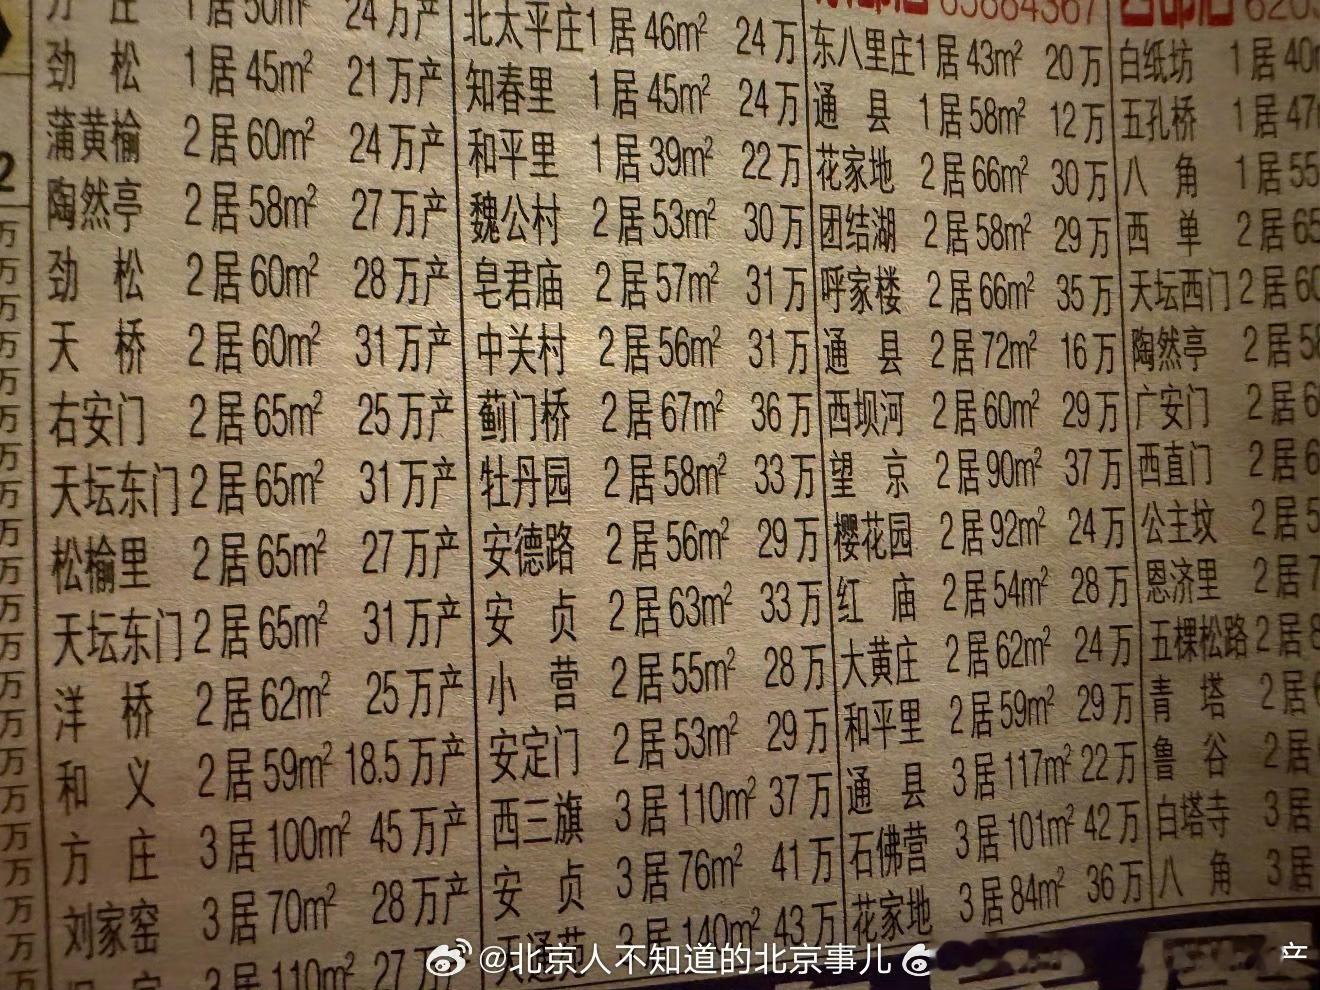 方 庄 1居50m² 24万产
劲 松 1居45m² 21万产
蒲黄榆 2居60m² 24万产
陶然亭 2居58m² 27万产
劲 松 2居60m² 28万产
天 桥 2居60m² 31万产
右安门 2居65m² 25万产
天坛东门 2居65m² 31万产
松榆里 2居65m² 27万产
天坛东门 2居65m² 31万产
洋 桥 2居62m² 25万产
和 义 2居59m² 18.5万产
方 庄 3居100m² 45万产
刘家窑 3居70m² 28万产
3居110m² 27
北太平庄 1居46m² 24万
知春里 1居45m² 24万
和平里 1居39m² 22万
魏公村 2居53m² 30万
皂君庙 2居57m² 31万
中关村 2居56m² 31万
蓟门桥 2居67m² 36万
牡丹园 2居58m² 33万
安德路 2居56m² 29万
安 贞 2居63m² 33万
小 营 2居55m² 28万
安定门 2居53m² 29万
西三旗 3居110m² 37万
安 贞 3居76m² 41万
天通苑 2居140m² 43万
65884367
东八里庄 1居43m² 20万
通 县 1居58m² 12万
花家地 2居66m² 30万
团结湖 2居58m² 29万
呼家楼 2居66m² 35万
通 县 2居72m² 16万
西坝河 2居60m² 29万
望 京 2居90m² 37万
樱花园 2居92m² 24万
红 庙 2居54m² 28万
大黄庄 2居62m² 24万
和平里 2居59m² 29万
通 县 3居117m² 22万
石佛营 3居101m² 42万
花家地 3居84m² 36万
白纸坊 1居40m
五孔桥 1居47
八 角 1居55
西 单 2居65
天坛西门 2居60
陶然亭 2居58
广安门 2居6
西直门 2居6
公主坟 2居5
恩济里 2居7
五棵松路 2居8
青 塔 2居6
鲁 谷 2居
白塔寺 3居
八 角 3居
@北京人不知道的北京事儿
产